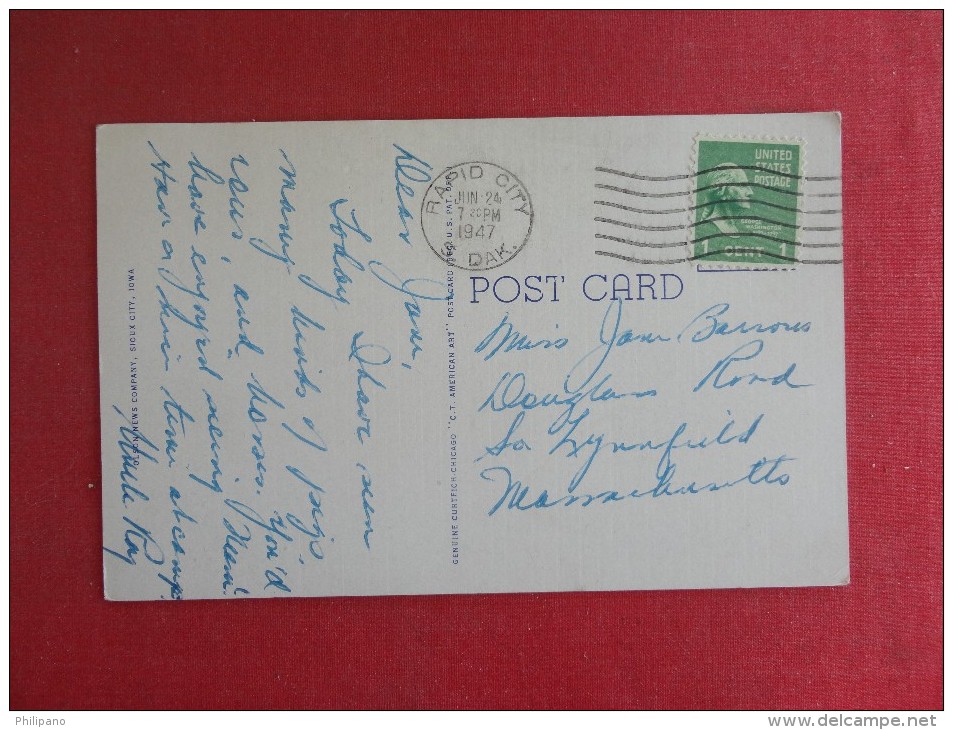 Dear Jane,
Today I have seen
many kinds of pigs,
cows, and horses. You'd
have enjoyed seeing them!
Have a fine time at camp.
Uncle Ray
OLSON NEWS COMPANY, SIOUX CITY, IOWA
GENUINE CURTEICH-CHICAGO "C.T. AMERICAN ART" POST CARD (REG. U.S. PAT. OFF.)
RAPID CITY
JUN 24
7 PM
1947
S. DAK.
UNITED
STATES
POSTAGE
GEORGE
WASHINGTON
1 CENT 1
POST CARD
Miss Jane Barrows
Douglass Road
So Lynnfield
Massachusetts
Philipano
www.delcampe.net